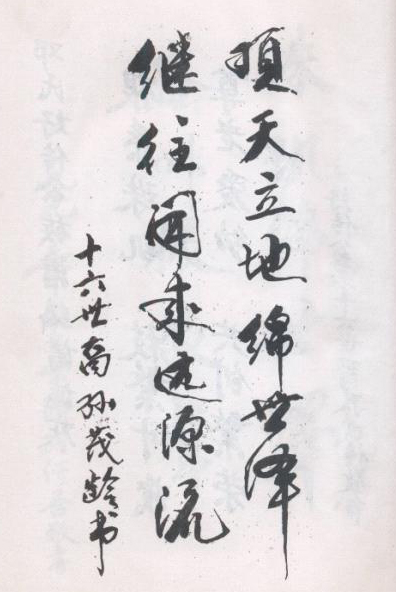 顶天立地绵世泽
继往开来远源流
十六世裔孙茂龄书